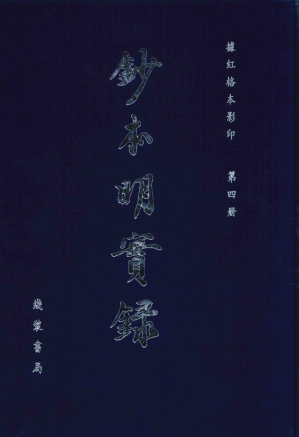 據紅格本影印 第四册
鈔本明實錄
綫裝書局